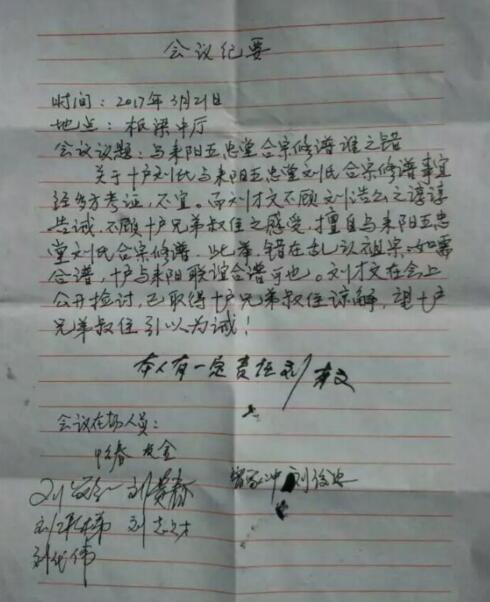 会议纪要
时间：2017年3月21日
地点：板梁中厅
会议议题：与耒阳五忠堂合宗修谱谁之错
关于十户刘氏与耒阳五忠堂刘氏合宗修谱事宜
经多方考证，不宜。而刘才文不顾刘浩公之谆谆
告诫，不顾十户兄弟叔侄之感受，擅自与耒阳五忠
堂刘氏合宗修谱。此举，错在乱认祖宗，如需
合谱，十户与耒阳联谊合谱可也。刘才文在会上
公开检讨，已取得十户兄弟叔侄谅解，望十户
兄弟叔侄引以为诫！
本人有一定责任刘才文
会议在场人员：
刘志才